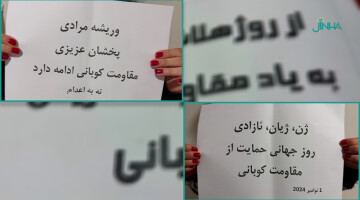 JINHA
وریشه مرادی
پخشان عزیزی
مقاومت کوبانی ادامه دارد
نه به اعدام
از روژهلات
به یاد مقاو
ژن، ژیان، ئازادی
روز جهانی حمایت از
مقاومت کوبانی
1 نوامبر 2024